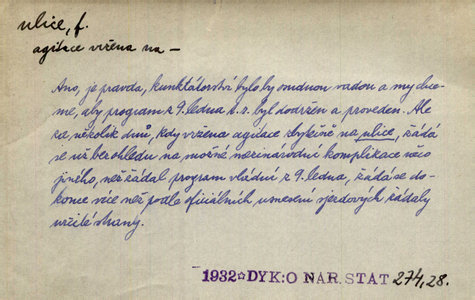 ulice, f.
agitace vržena na —
Ano, je pravda, kunktátorství bylo by osudnou vadou a my chce-
me, aby program z 9. ledna t. r. byl dodržen a proveden. Ale
za několik dnů, kdy vržena agitace zbytečně na ulice, žádá
se už bez ohledu na možné mezinárodní komplikace něco
jiného, než žádal program vládní z 9. ledna, žádá se do-
konce více než podle oficiálních usnesení sjezdových žádaly
určité strany.
1932☆DYK: O NAR. STAT 274, 28.